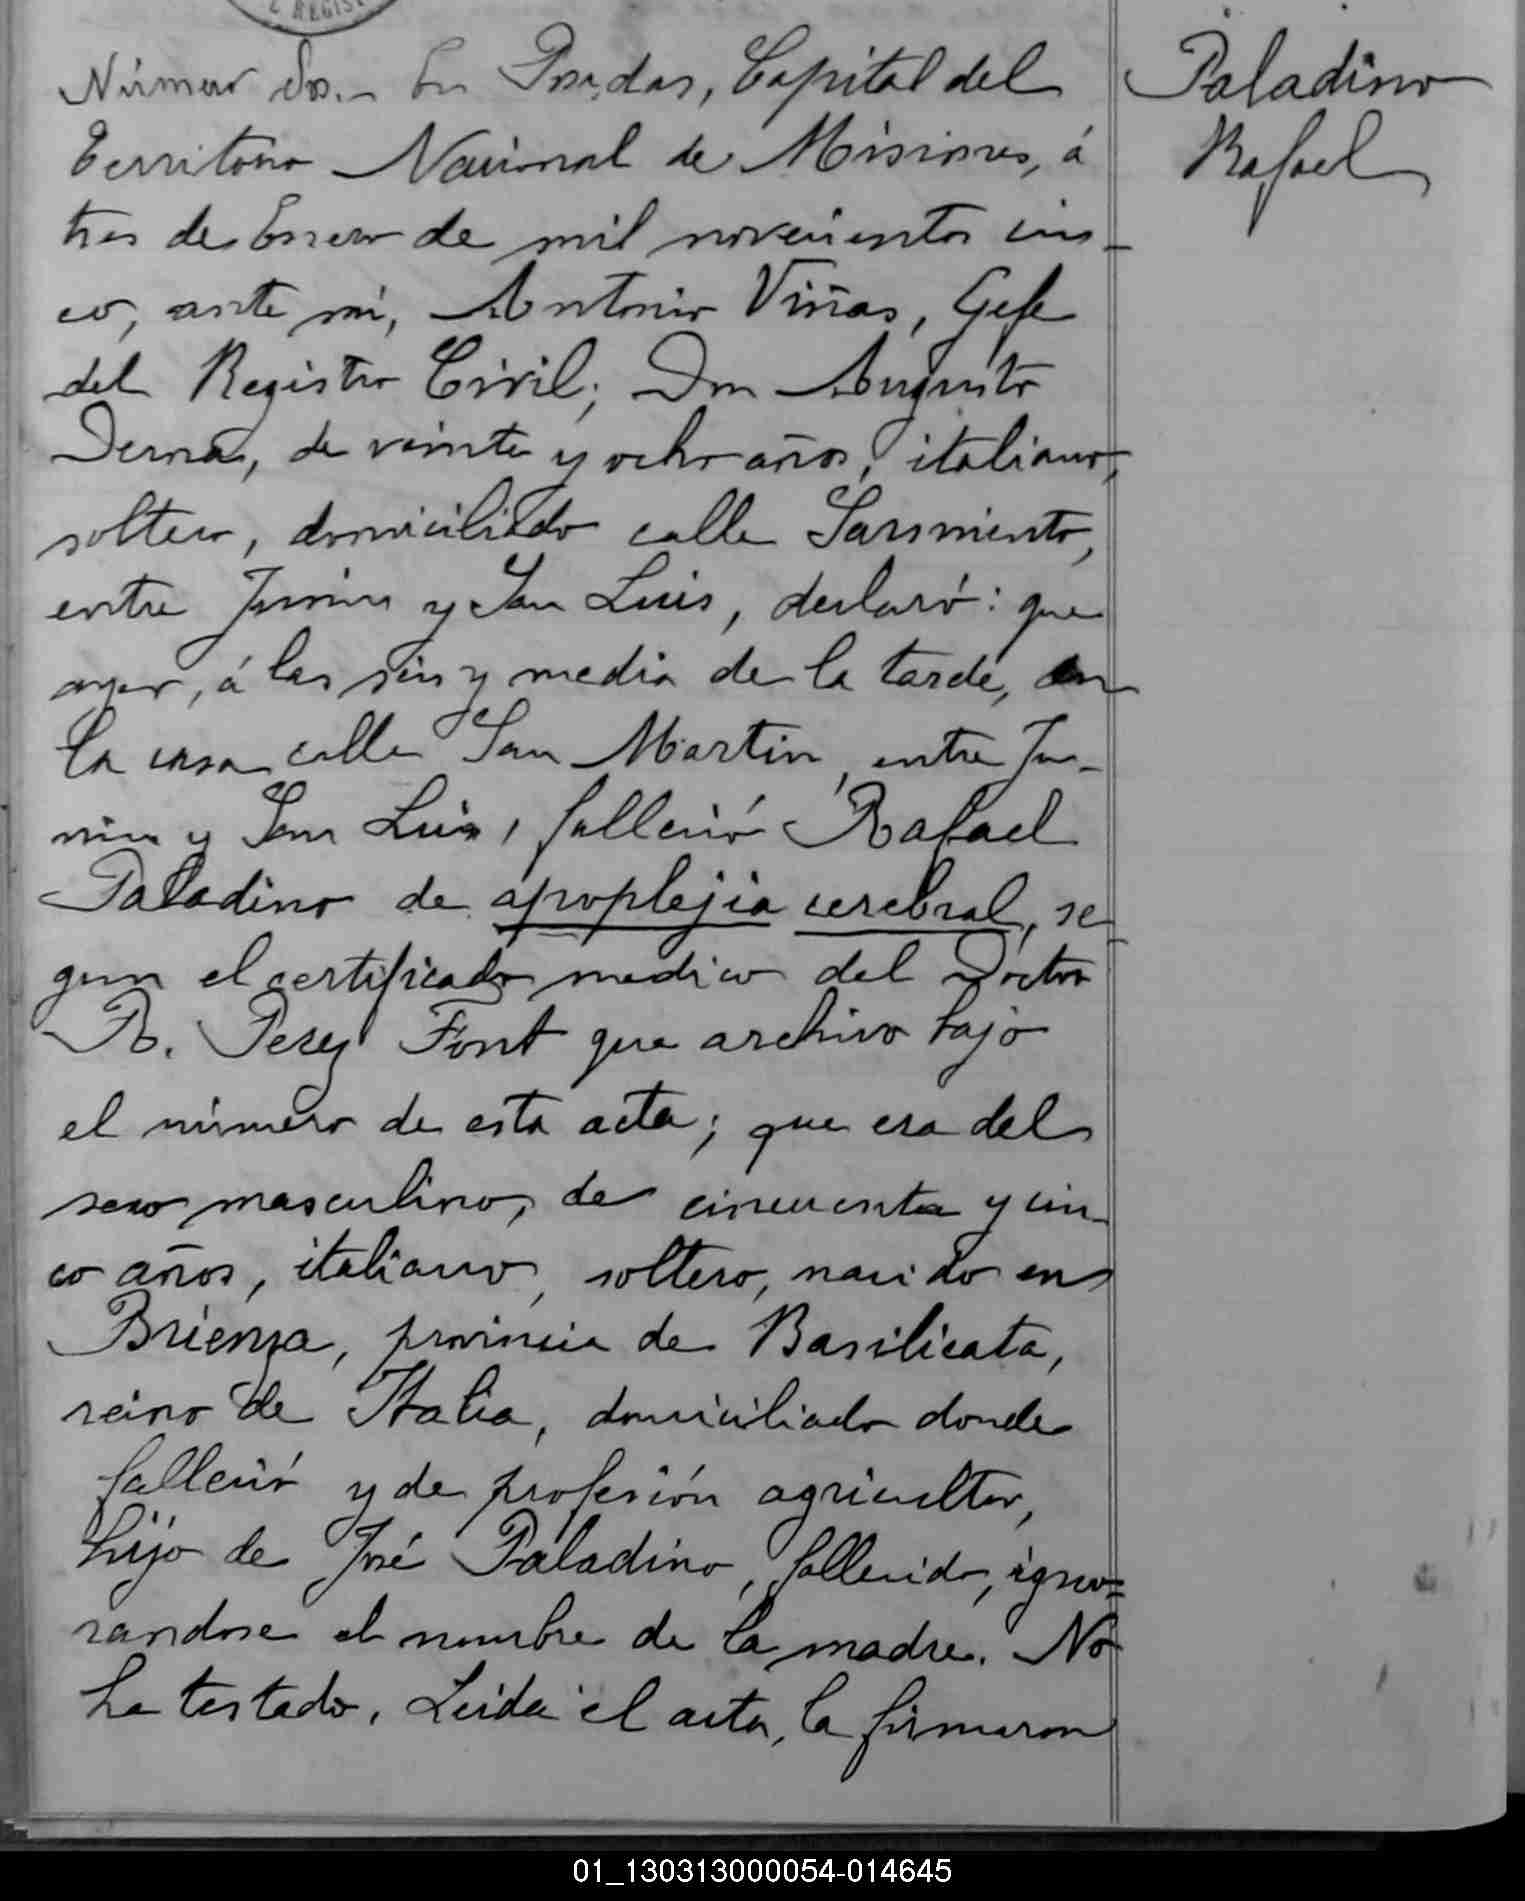 L REGIS
Número dos.- En Posadas, Capital del
Territorio Nacional de Misiones, á
tres de Enero de mil novecientos cin-
co, ante mi, Antonio Viñas, Gefe
del Registro Civil; Don Augusto
Derna, de veinte y ocho años, italiano,
soltero, domiciliado calle Sarmiento,
entre Junin y San Luis, declaró: que
ayer, á las seis y media de la tarde, en
la casa calle San Martin, entre Ju-
nin y San Luis, falleció Rafael
Paladino de apoplejia cerebral, se-
gun el certificado medico del Doctor
R. Perez Font que archivo bajo
el número de esta acta; que era del
sexo masculino, de cincuenta y cin-
co años, italiano, soltero, nacido en
Brienza, provincia de Basilicata,
reino de Italia, domiciliado donde
falleció y de profesión agricultor,
hijo de José Paladino, fallecido, igno=
randose el nombre de la madre. No
ha testado. Leida el acta, la firmaron
Paladino
Rafael
01_130313000054-014645